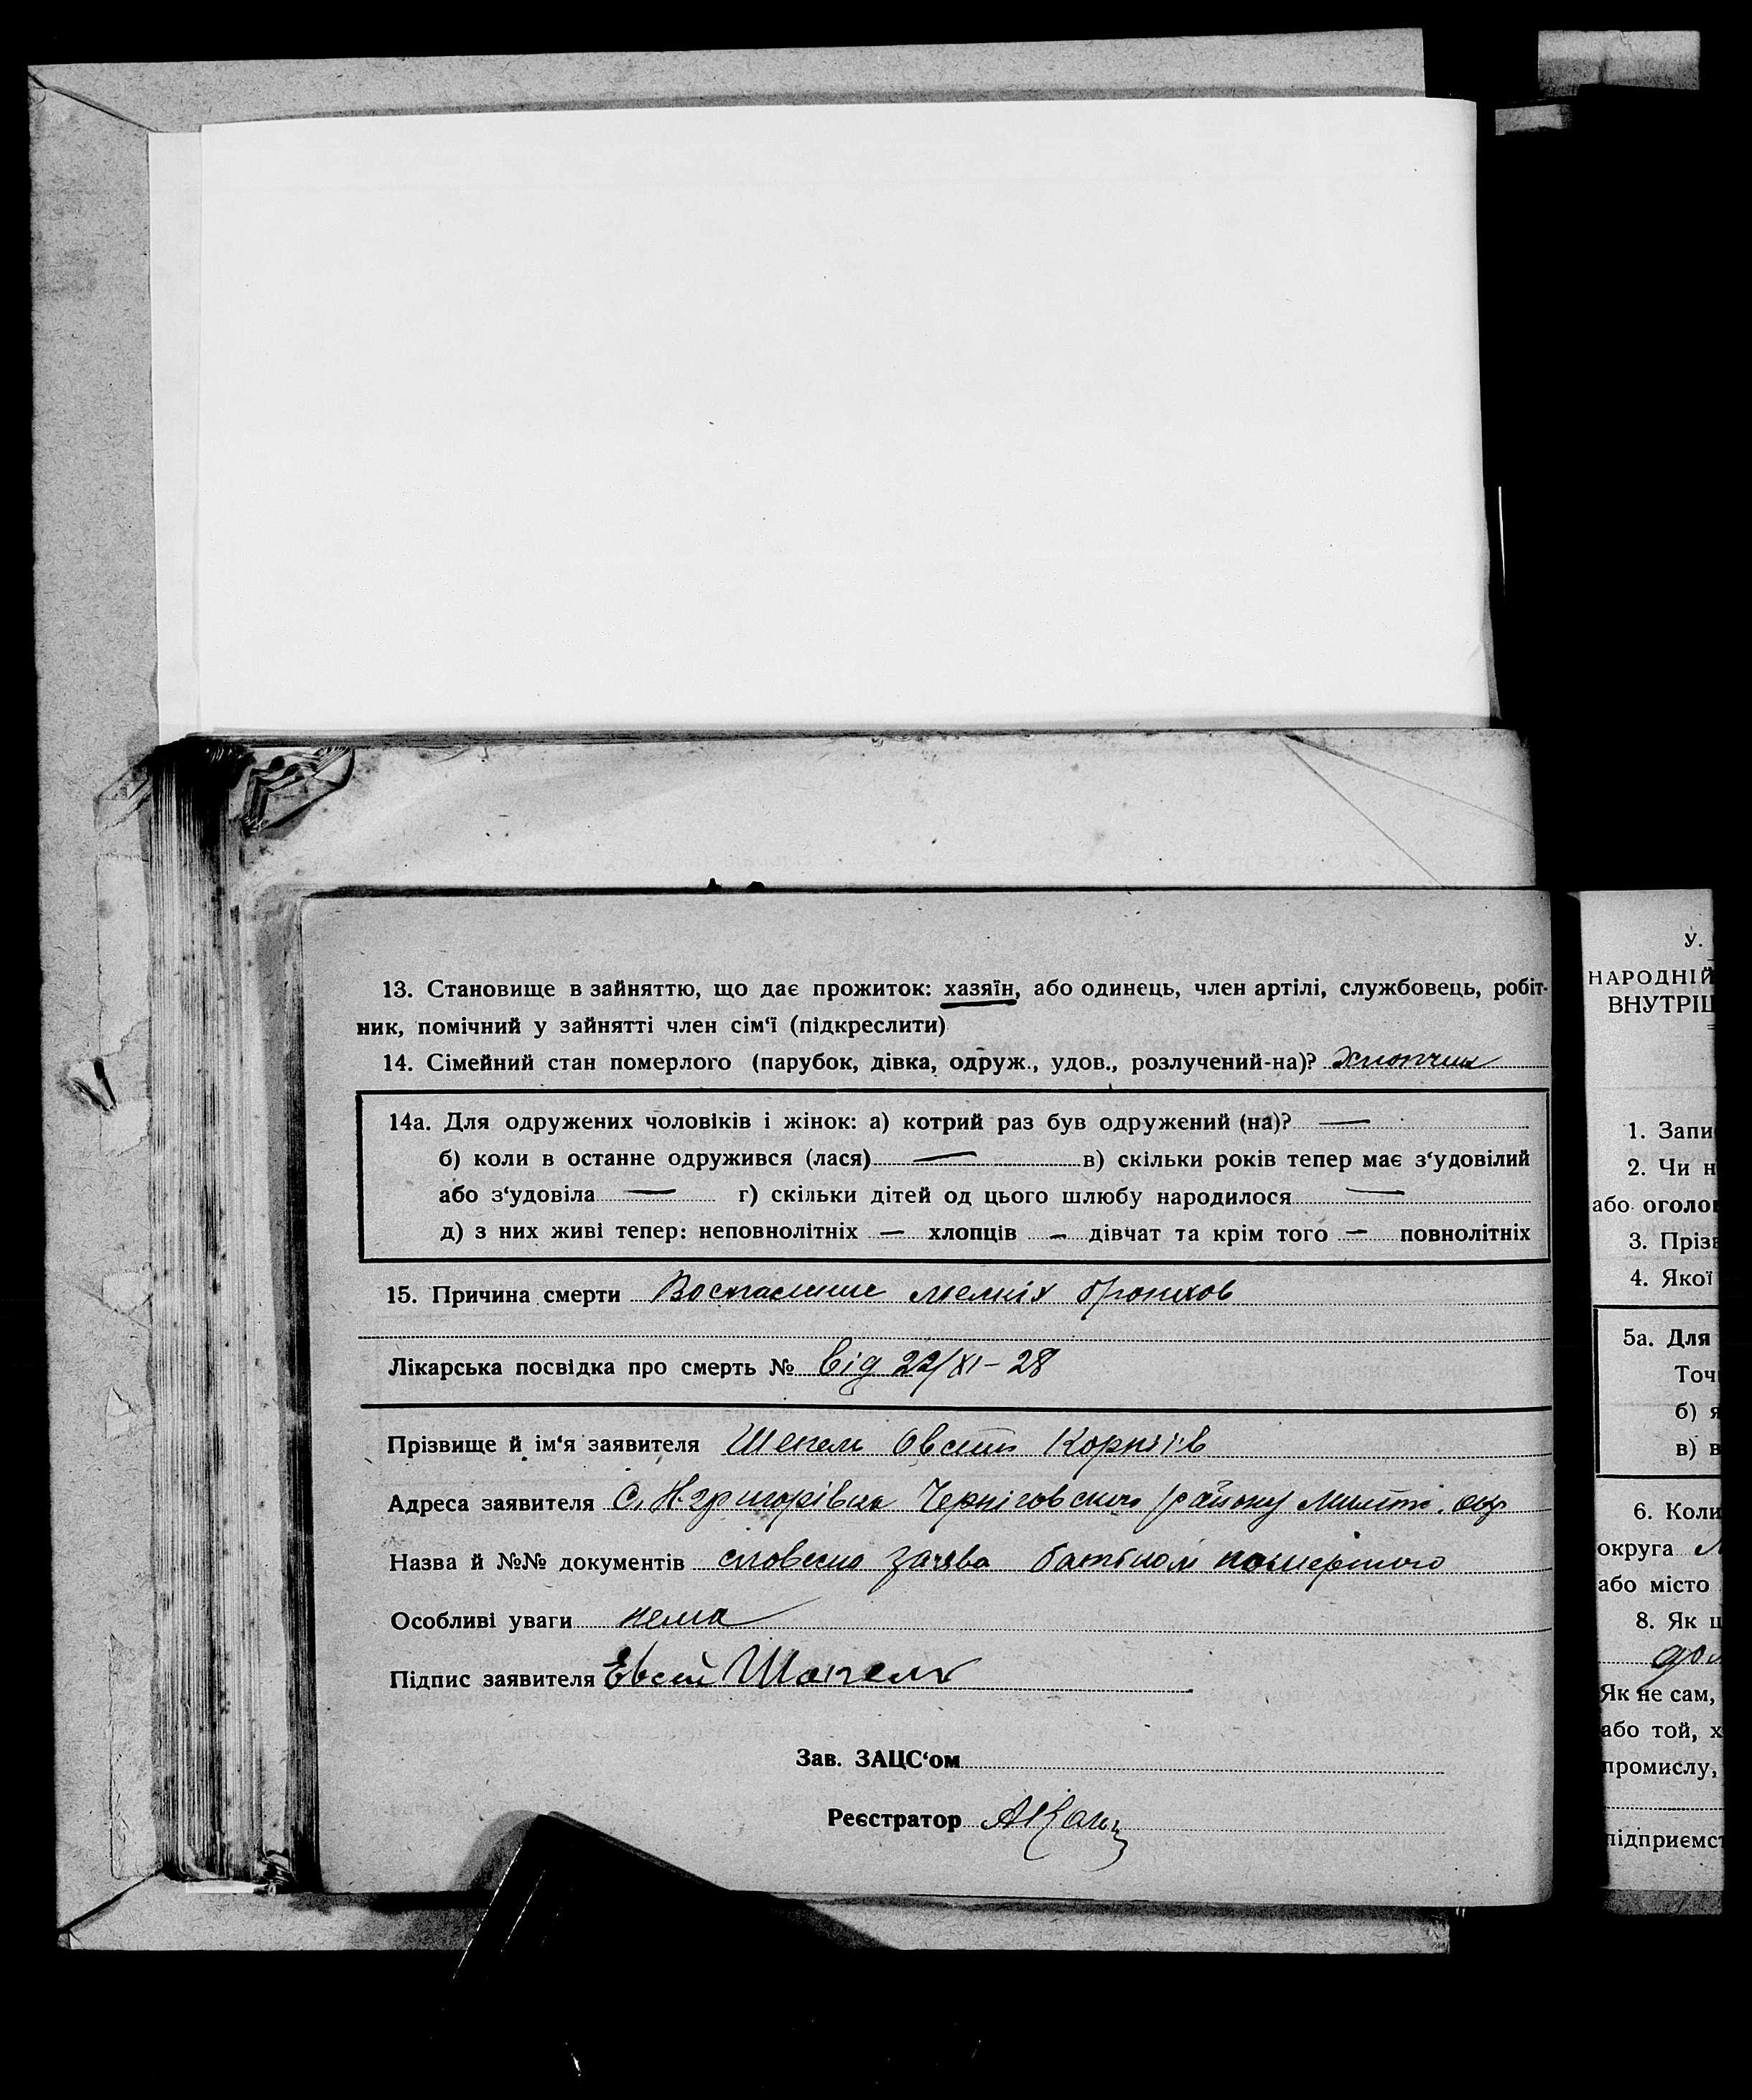 13. Становище в зайняттю, що дає прожиток: хазяїн, або одинець, член артілі, службовець, робіт-
ник, помічний у зайнятті член сім‘ї (підкреслити)
14. Сімейний стан померлого (парубок, дівка, одруж., удов., розлучений-на)? хлопчик
14а. Для одружених чоловіків і жінок: а) котрий раз був одружений (на)? —
б) коли в останне одружився (лася) — в) скільки років тепер має з‘удовілий
або з‘удовіла — г) скільки дітей од цього шлюбу народилося —
д) з них живі тепер: неповнолітніх — хлопців — дівчат та крім того — повнолітніх
15. Причина смерти Воспаление мелкіх бронхов
Лікарська посвідка про смерть № від 22/XI – 28
Прізвище й ім‘я заявителя Корніїв
Адреса заявителя С. Н. Григорівка Черніговского району Меліт. окр
Назва й №№ документів словесна заява батьком помершого
Особливі уваги нема
Підпис заявителя Евсей Шапель
Зав. ЗАЦС‘ом
Реєстратор
У.
НАРОДНІЙ
ВНУТРІШ
1. Запи
2. Чи н
або оголо
3. Прізв
4. Якої
5а. Для
Точ
б) я
в) в
6. Коли
округа
або місто
8. Як ц
Як не сам,
або той, х
промислу,
підприємст